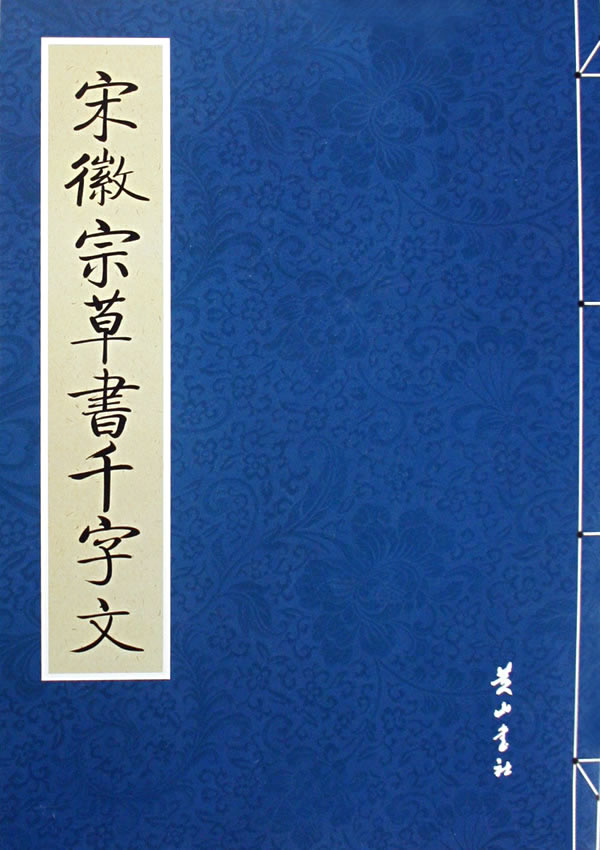 宋徽宗草書千字文
黄山书社